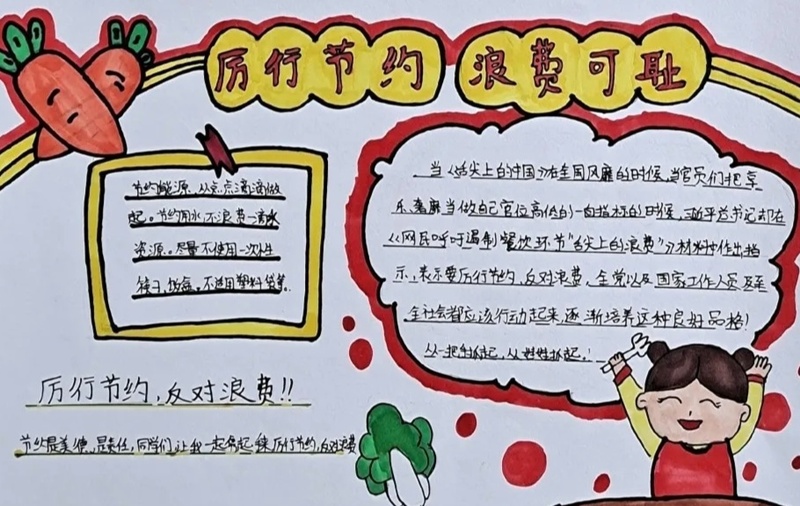 厉行节约 浪费可耻
节约能源,从点点滴滴做
起。节约用水,不浪费一滴水
资源。尽量不使用一次性
筷子,饭盒。不适用塑料袋等。
当《舌尖上的中国》在全国风靡的时候,当官员们把享
乐、奢靡当做自己官位高低的一向指标的时候,习近平总书记却在
《网民呼吁遏制餐饮环节"舌尖上的浪费"》材料上作出指
示,表示要厉行节约,反对浪费,全党以及国家工作人员及至
全社会都应该行动起来,逐渐培养这种良好品格!
从一把手抓起,从娃娃抓起!
厉行节约,反对浪费!!
节约是美德,是责任,同学们让我一起来厉行节约,反对浪费